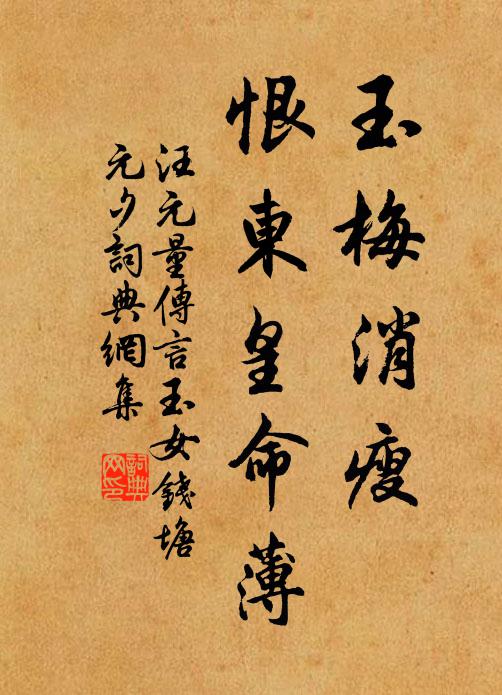 玉梅消瘦
恨東皇命薄
汪元量傳言玉女錢塘
元夕詞典網集
詞典网印